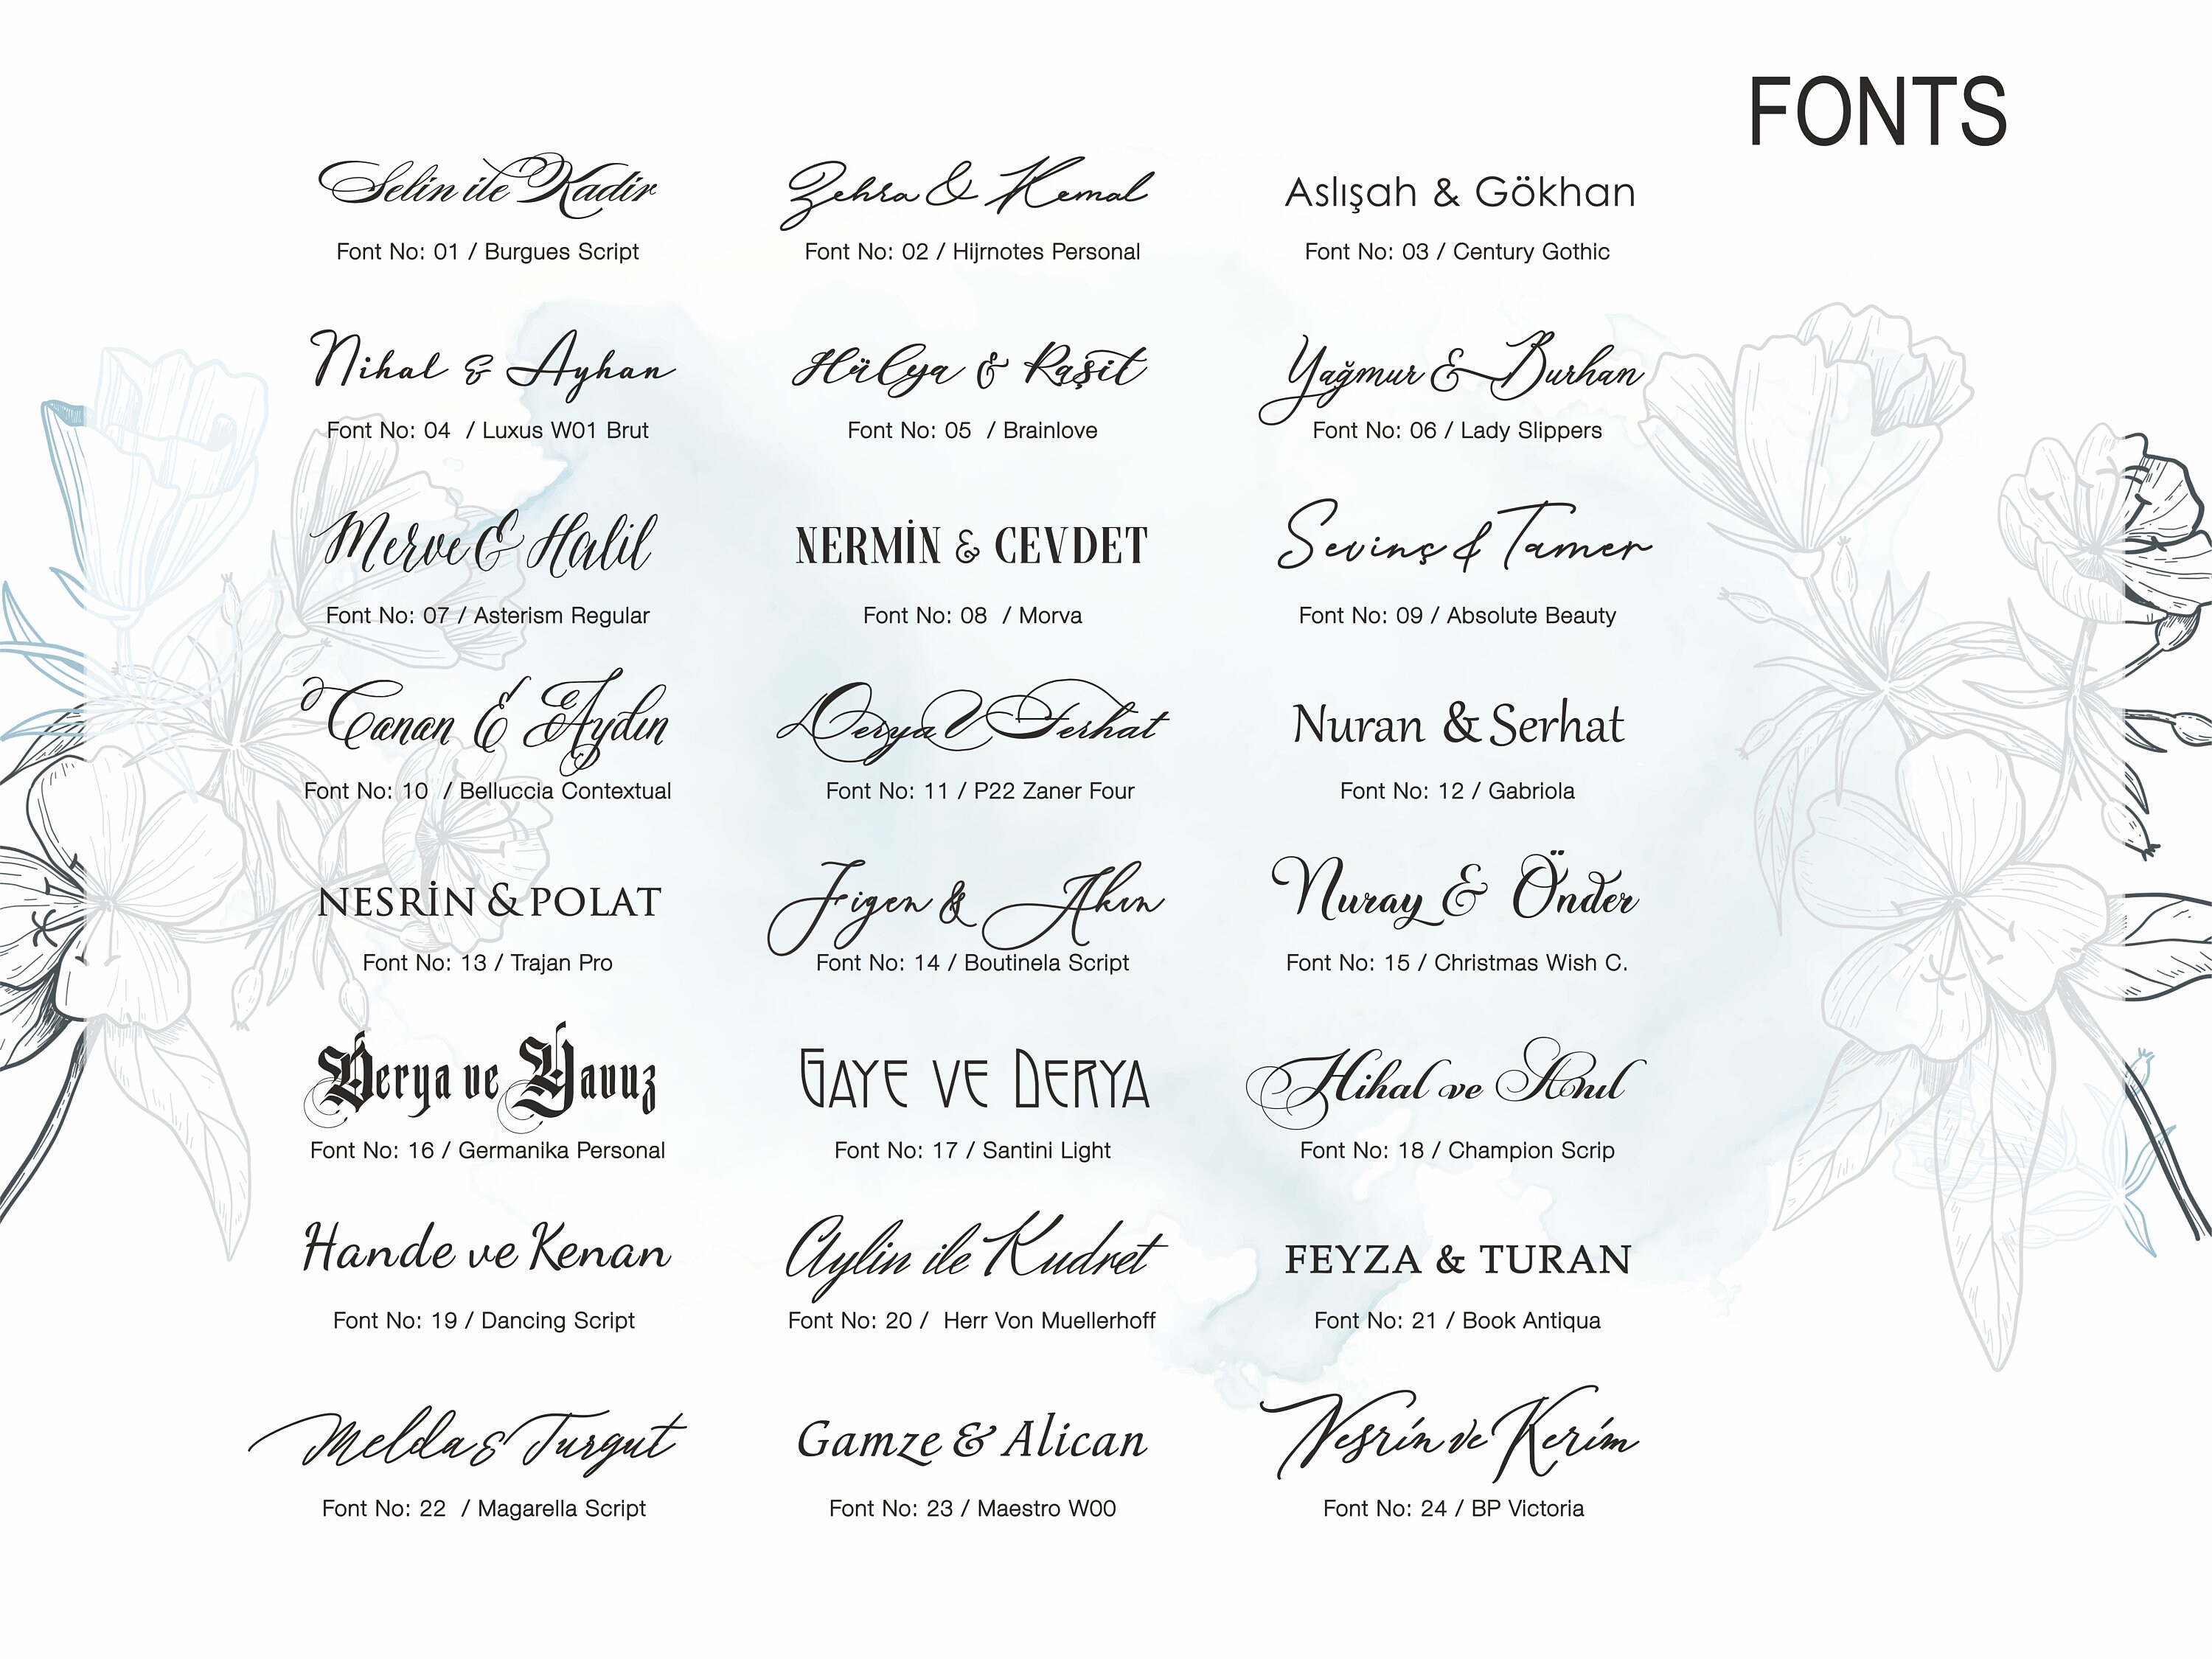 FONTS
Selin ile Kadir
Font No: 01 / Burgues Script
Zehra & Kemal
Font No: 02 / Hijrnotes Personal
Aslışah & Gökhan
Font No: 03 / Century Gothic
Nihal & Ayhan
Font No: 04 / Luxus W01 Brut
Hülya & Raşit
Font No: 05 / Brainlove
Yağmur & Burhan
Font No: 06 / Lady Slippers
Merve & Halil
Font No: 07 / Asterism Regular
NERMİN & CEVDET
Font No: 08 / Morva
Sevinş & Tamer
Font No: 09 / Absolute Beauty
Canan & Aydın
Font No: 10 / Belluccia Contextual
Derya & Ferhat
Font No: 11 / P22 Zaner Four
Nuran & Serhat
Font No: 12 / Gabriola
NESRİN & POLAT
Font No: 13 / Trajan Pro
Figen & Akın
Font No: 14 / Boutinela Script
Nuray & Önder
Font No: 15 / Christmas Wish C.
Derya ve Yavuz
Font No: 16 / Germanika Personal
GAYE VE DERYA
Font No: 17 / Santini Light
Hihal ve Anıl
Font No: 18 / Champion Scrip
Hande ve Kenan
Font No: 19 / Dancing Script
Aylin ile Kudret
Font No: 20 / Herr Von Muellerhoff
FEYZA & TURAN
Font No: 21 / Book Antiqua
Melda & Turgut
Font No: 22 / Magarella Script
Gamze & Alican
Font No: 23 / Maestro W00
Nesrin ve Kerim
Font No: 24 / BP Victoria